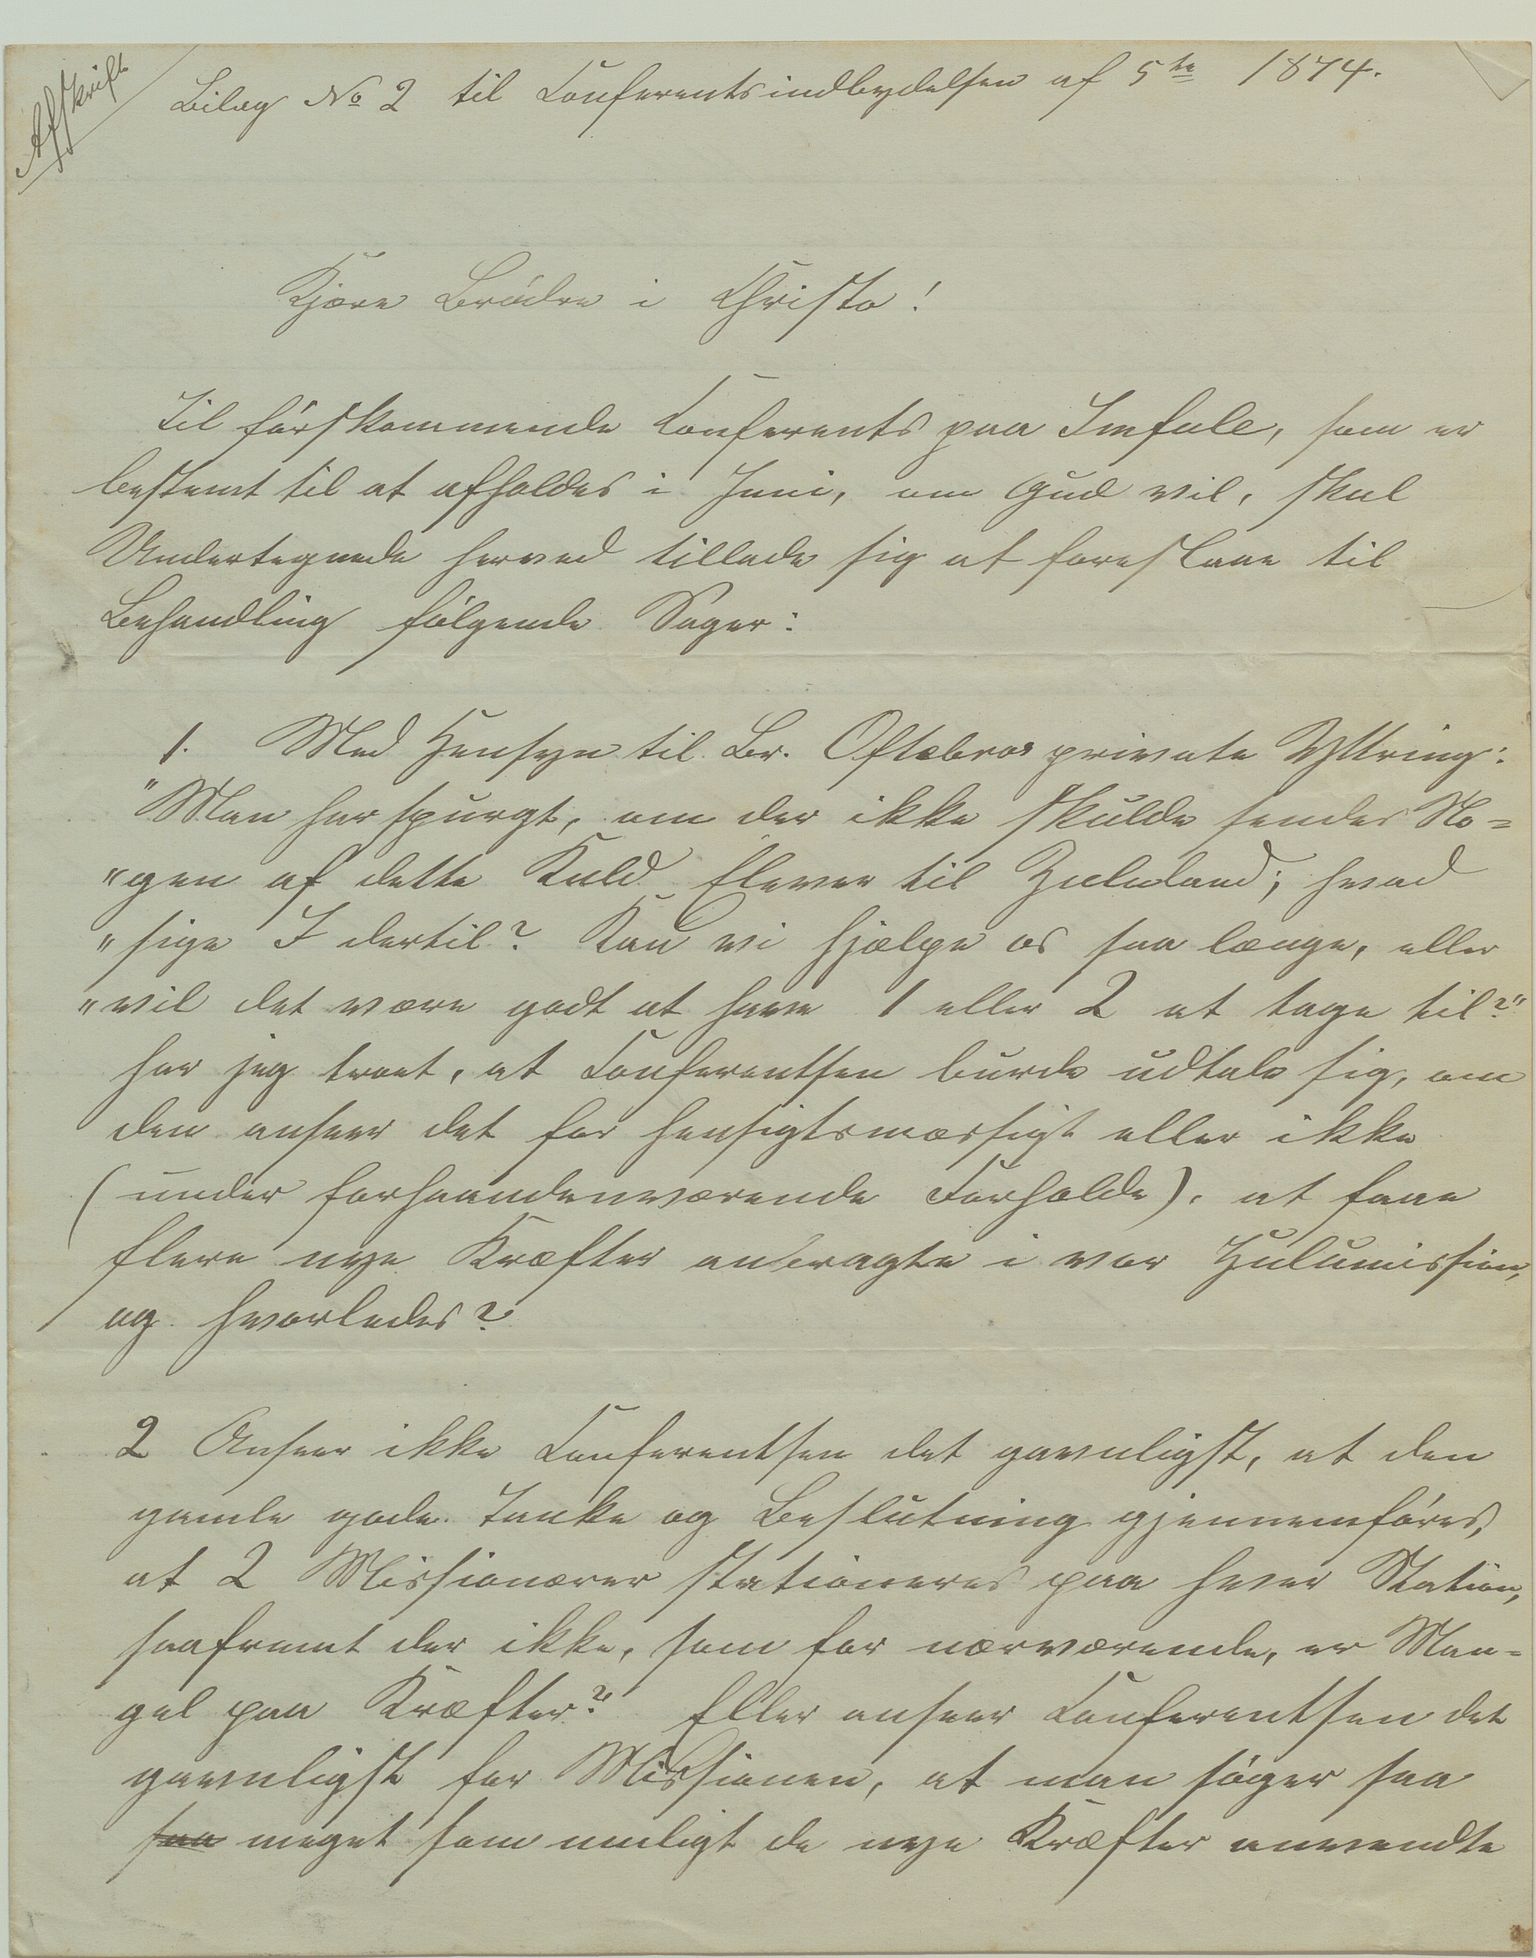 Afskrift
Bilag No 2 til Conferentsindbydelsen af 5te 1874.
Kjære Brödre i Christo!
Til förstkommende Conferents paa Imfule, som er
bestemt til at afholdes i Juni, om Gud vil, skal
Undertegnede herved tillade sig at foreslaae til
Behandling fölgende Sager:
1. Med Hensyn til Br. Oftebros private Yttring:
"Man har spurgt, om der ikke skulde sendes No=
"gen af dette Kuld Elever til Zululand; hvad
"sige I dertil? Kan vi hjælpe os saa længe, eller
"vil det være godt at have 1 eller 2 at tage til?"
har jeg troet, at Conferentsen burde udtale sig, om
den anseer det for hensigtsmæssigt eller ikke
(under forhaandenværende Forholde), at faae
flere nye Kræfter anbragte i vor Zulumission,
og hvorledes?
2 Anseer ikke Conferentsen det gavnligst, at den
gamle gode Tanke og Beslutning gjennemföres,
at 2 Missionærer stationeres paa hver Station,
saafremt der ikke, som for nærværende, er Man=
gel paa Kræfter? Eller anseer Conferentsen det
gavnligst for Missionen, at man söger saa
saa meget som muligt de nye Kræfter anvendte